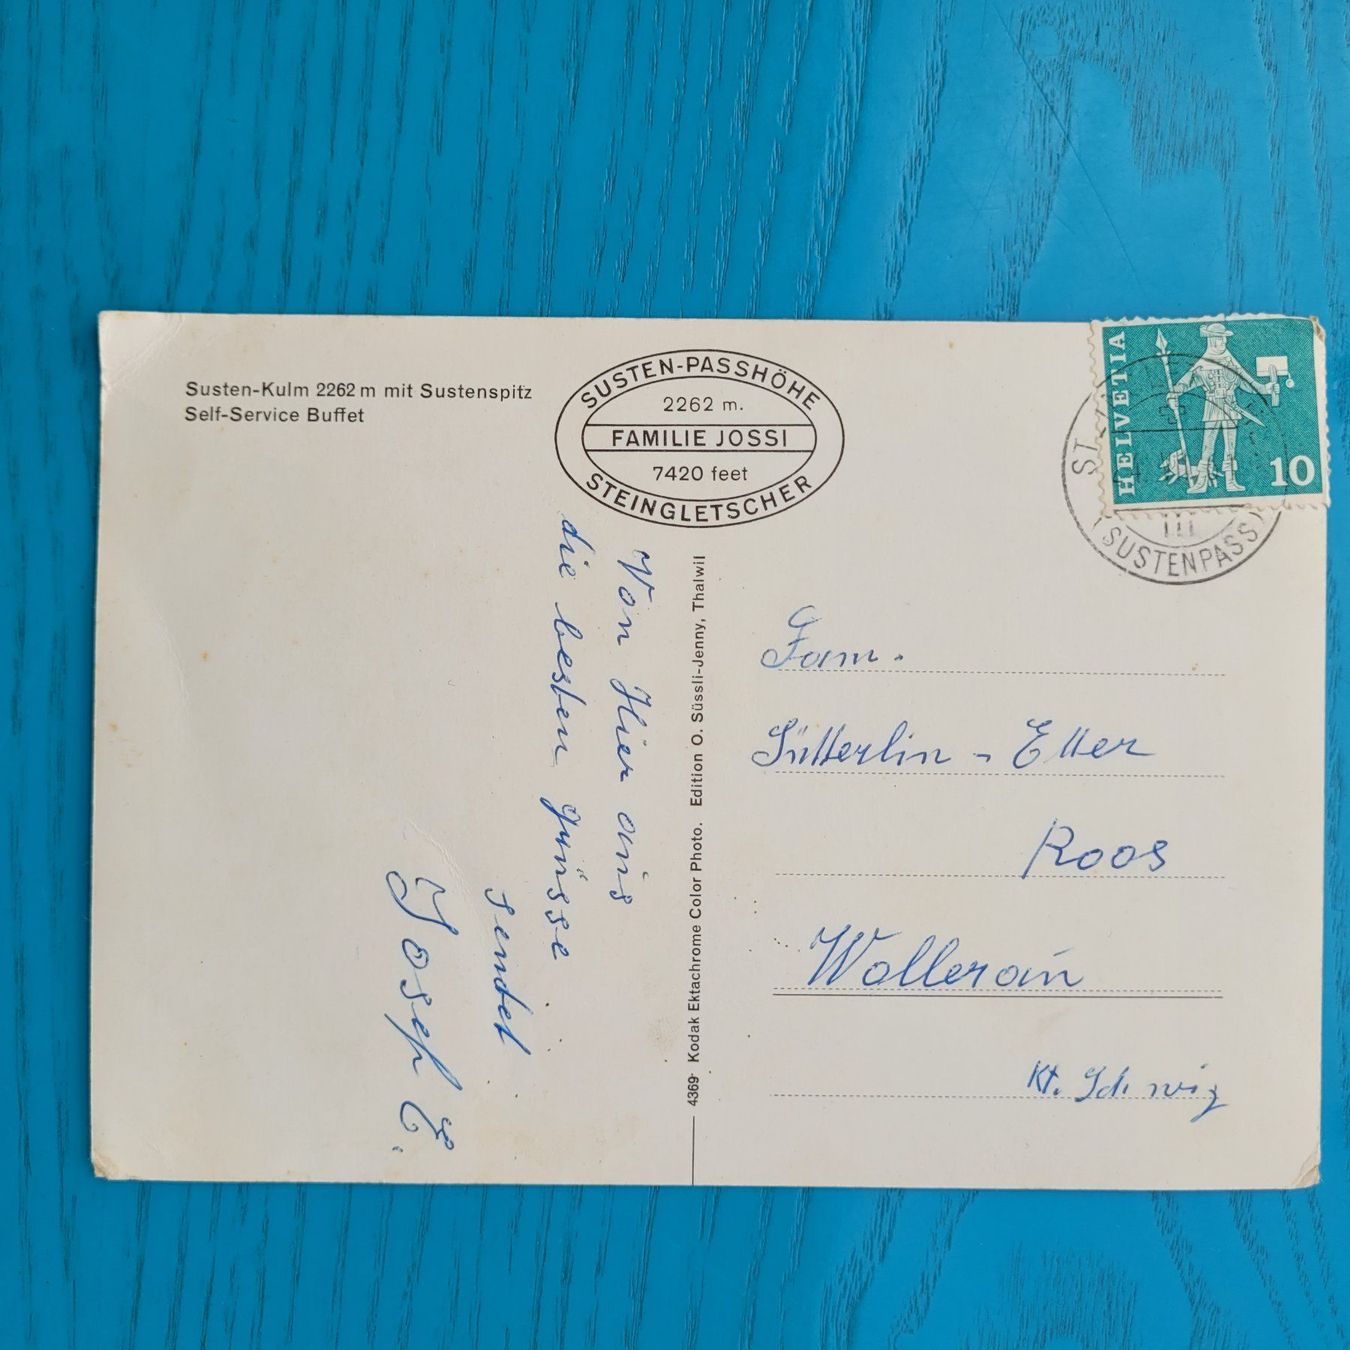 Susten-Kulm 2262 m mit Sustenspitz
Self-Service Buffet
SUSTEN-PASSHÖHE
2262 m.
FAMILIE JOSSI
7420 feet
STEINGLETSCHER
Von Hier aus
die besten grüsse
sendet
Josef E.
4369 Kodak Ektachrome Color Photo. Edition O. Süssli-Jenny, Thalwil
HELVETIA
10
III
(SUSTENPASS)
Fam.
Sütterlin - Etter
Roos
Wollerau
Kt. Schwiz